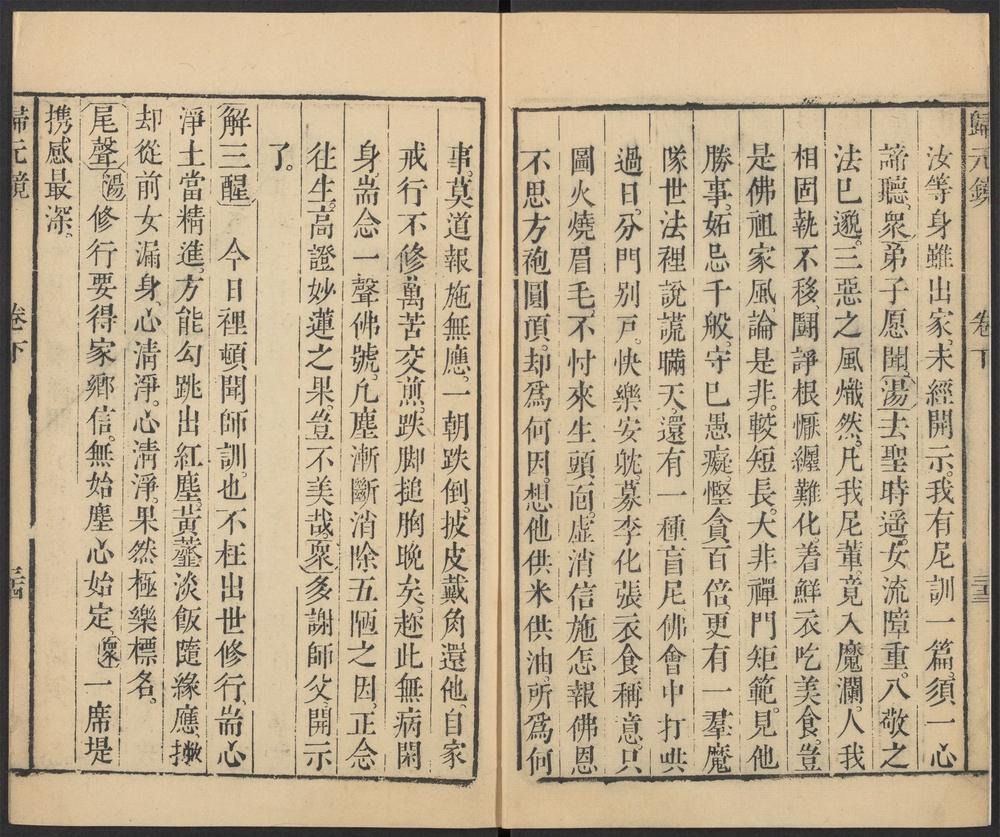 歸元鏡 卷下 三十三
汝等身雖出家。未經開示。我有尼訓一篇。須一心
諦聽。衆弟子愿聞。湯去聖時遥。女流障重。八敬之
法已邈。三惡之風熾然。凡我尼董竟入魔瀾。人我
相固執不移。鬪諍根懨纒難化。着鮮衣吃美食。豈
是佛祖家風。論是非。較短長。大非禪門矩範。見他
勝事。妬忌千般。守已愚癡。慳貪百倍。更有一羣魔
隊。世法裡說謊瞞天。還有一種盲尼。佛會中打哄
過日。分門別戸。快樂安躭。募李化張。衣食稱意。只
圖火燒眉毛。不忖來生頭面。虚消信施。怎報佛恩
不思方袍圓頂。却爲何因。想他供米供油。所爲何
事。莫道報施無應。一朝跌倒。披皮戴角還他。自家
戒行不修。萬苦交煎。跌脚搥胸晩矣。趂此無病閑
身。耑念一聲佛號。凢塵漸斷。消除五陋之因。正念
往生。高證妙蓮之果。豈不美哉。衆多謝師父。開示
了。
解三醒 今日裡頓聞師訓。也不枉出世修行。耑心
淨土當精進。方能勾跳出紅塵。黃虀淡飯隨緣應。撇
却從前女漏身。心清淨。心清淨。果然極樂標名。
尾聲 湯修行要得家鄉信。無始塵心始定 衆一席堤
携感最深。
歸元鏡 卷下 三十四